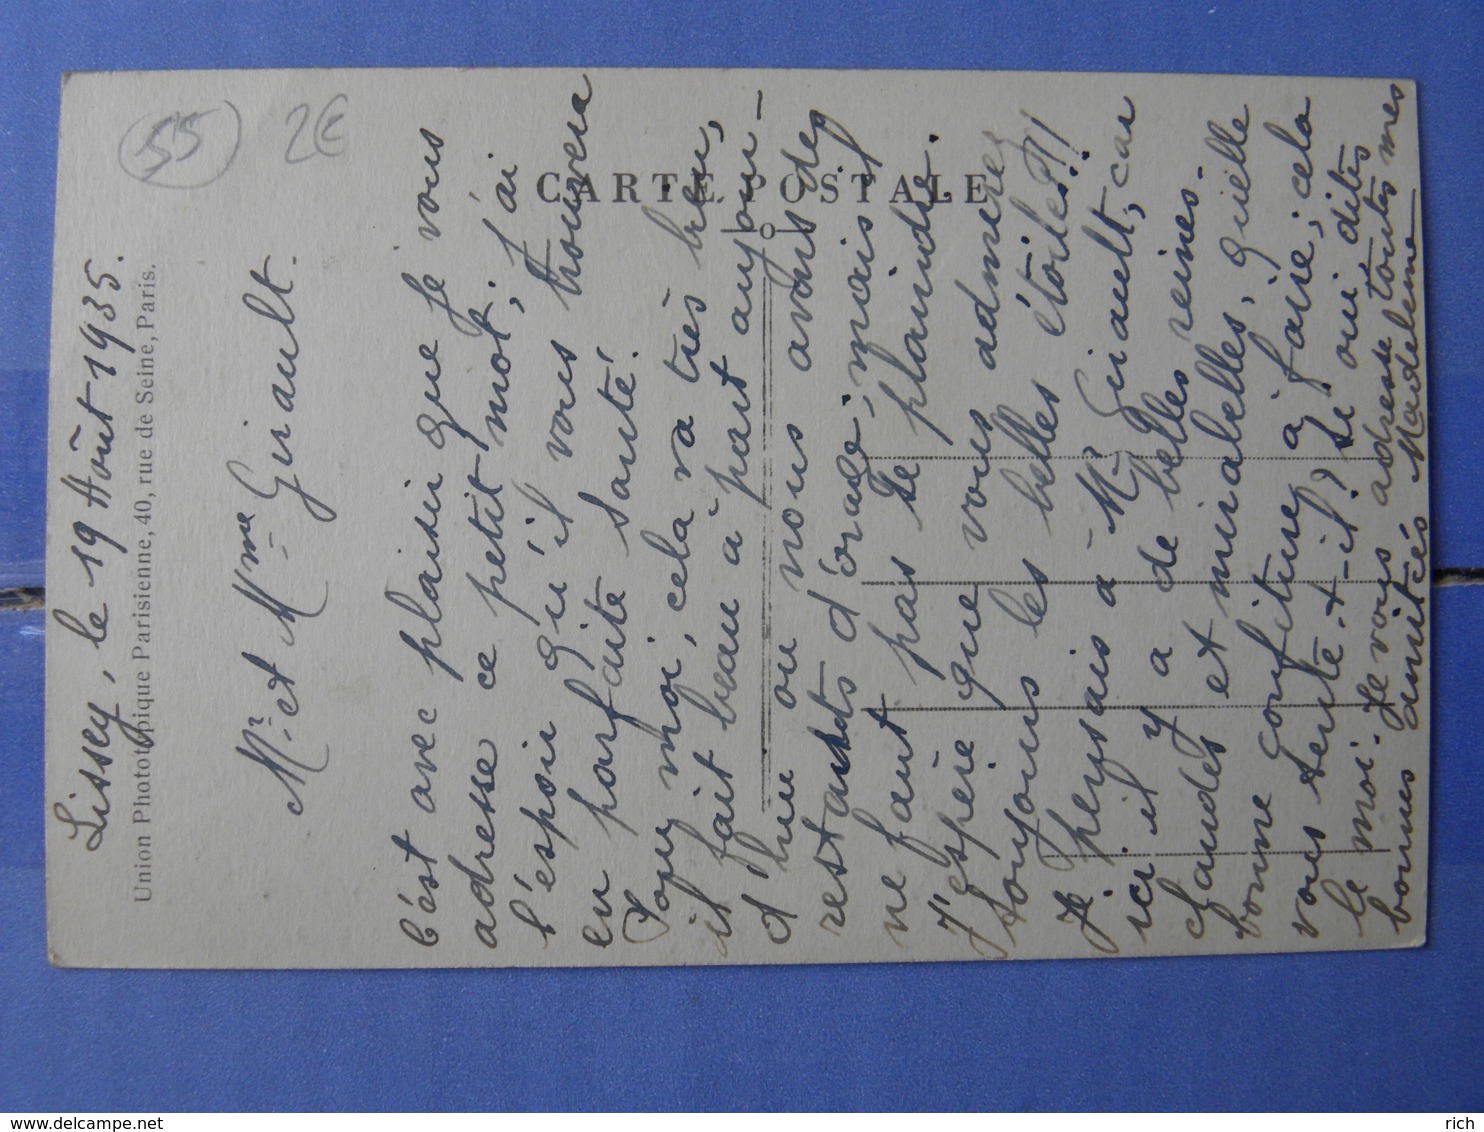 55
2€
CARTE POSTALE
Union Phototypique Parisienne, 40, rue de Seine, Paris.
Lissey, le 19 Août 1935.
Mr. et Mme Girault.
C'est avec plaisir que je vous
adresse ce petit mot, j'ai
l'espoir qu'il vous trouvera
en parfaite santé.
Pour moi, cela va très bien,
il fait beau à part aujour-
d'hui ou nous avons des
restants d'orage, mais il
ne faut pas se plaindre.
J'espère que vous admirez
toujours les belles étoiles!!!
Je pensais à Mr Girault, car
ici il y a de belles reines-
claudes et mirabelles, quelle
bonne confiture à faire; cela
vous tente-t-il? Si oui dites
le moi. Je vous adresse toutes mes
bonnes amitiés Madeleine
www.delcampe.net
rich